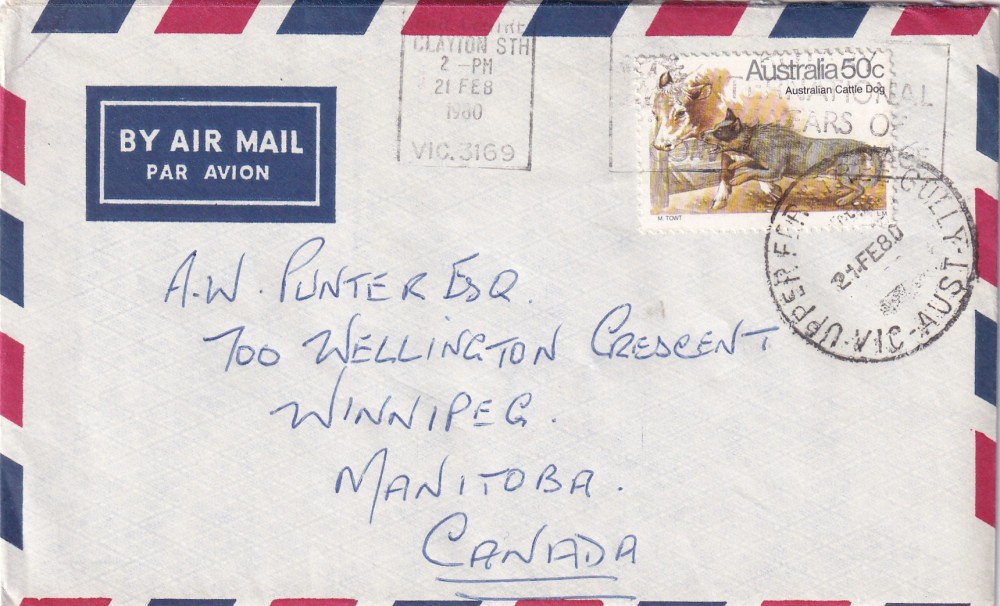 CLAYTON STH
2 -PM
21 FEB
1980
VIC. 3169
Australia 50c
Australian Cattle Dog
M. TOWT
BY AIR MAIL
PAR AVION
UPPER GULLY
21 FE 80
VIC-AUST
A.W. PUNTER ESQ.
700 WELLINGTON CRESCENT
WINNIPEG.
MANITOBA.
CANADA